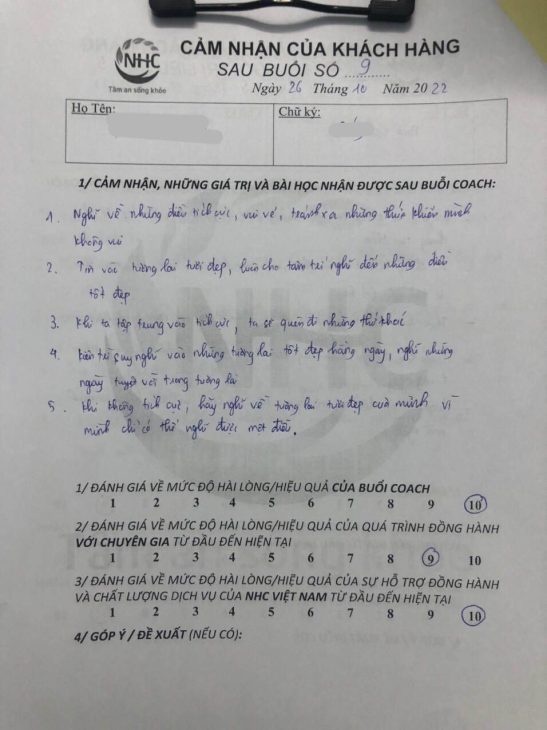 NHC
Tâm an sống khỏe
CẢM NHẬN CỦA KHÁCH HÀNG
SAU BUỔI SỐ 9
Ngày 26 Tháng 10 Năm 2022
Họ Tên:
Chữ ký:
1/ CẢM NHẬN, NHỮNG GIÁ TRỊ VÀ BÀI HỌC NHẬN ĐƯỢC SAU BUỔI COACH:
1. Nghĩ về những điều tích cực, vui vẻ, tránh xa những thứ khiến mình
không vui
2. Tin vào tương lai tươi đẹp, luôn cho tâm trí nghĩ đến những điều
tốt đẹp
3. Khi ta tập trung vào tích cực, ta sẽ quên đi những thứ khác
4. Kiên trì suy nghĩ vào những tương lai tốt đẹp hàng ngày, nghĩ những
ngày tuyệt vời trong tương lai
5. Khi không tích cực, hãy nghĩ về tương lai tươi đẹp của mình vì
mình chỉ có thể nghĩ được một điều.
1/ ĐÁNH GIÁ VỀ MỨC ĐỘ HÀI LÒNG/HIỆU QUẢ CỦA BUỔI COACH
1 2 3 4 5 6 7 8 9 10
2/ ĐÁNH GIÁ VỀ MỨC ĐỘ HÀI LÒNG/HIỆU QUẢ CỦA QUÁ TRÌNH ĐỒNG HÀNH
VỚI CHUYÊN GIA TỪ ĐẦU ĐẾN HIỆN TẠI
1 2 3 4 5 6 7 8 9 10
3/ ĐÁNH GIÁ VỀ MỨC ĐỘ HÀI LÒNG/HIỆU QUẢ CỦA SỰ HỖ TRỢ ĐỒNG HÀNH
VÀ CHẤT LƯỢNG DỊCH VỤ CỦA NHC VIỆT NAM TỪ ĐẦU ĐẾN HIỆN TẠI
1 2 3 4 5 6 7 8 9 10
4/ GÓP Ý / ĐỀ XUẤT (NẾU CÓ):